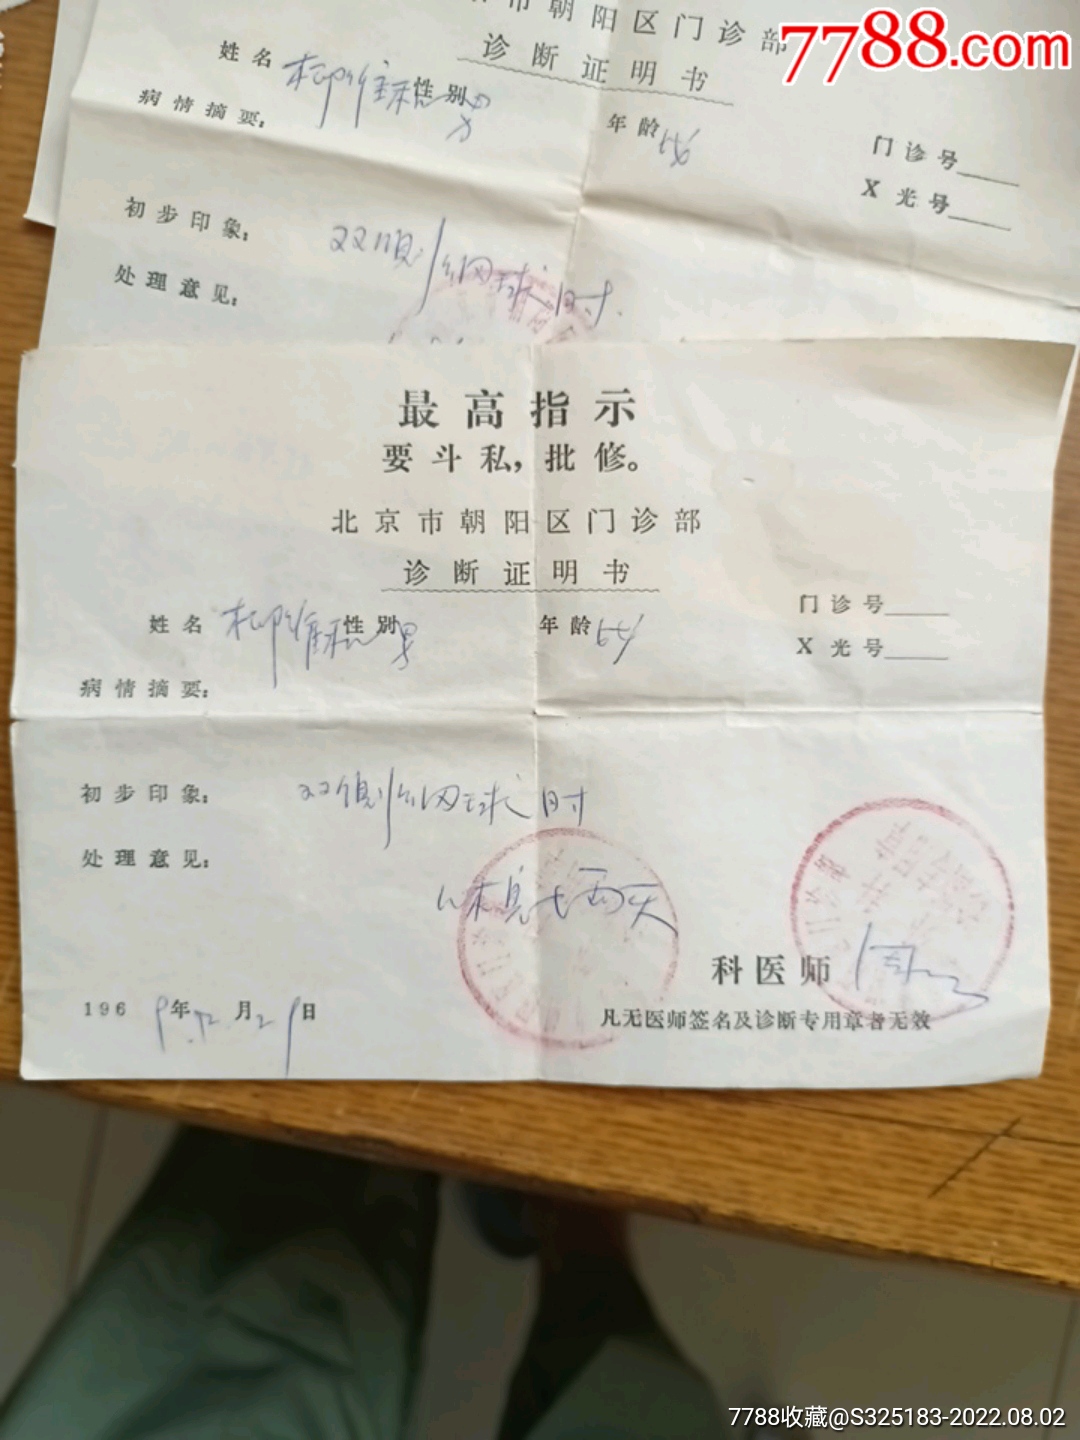 7788.com
市朝阳区门诊部
诊断证明书
姓名 性别 男 年龄 门诊号
病情摘要： X光号
初步印象： 双侧网球肘
处理意见：
最高指示
要斗私，批修。
北京市朝阳区门诊部
诊断证明书
姓名 性别 男 年龄 门诊号
X光号
病情摘要：
初步印象： 双侧网球肘
处理意见：
休息 两天
科医师
1969年12月29日
凡无医师签名及诊断专用章者无效
7788收藏@S325183-2022.08.02